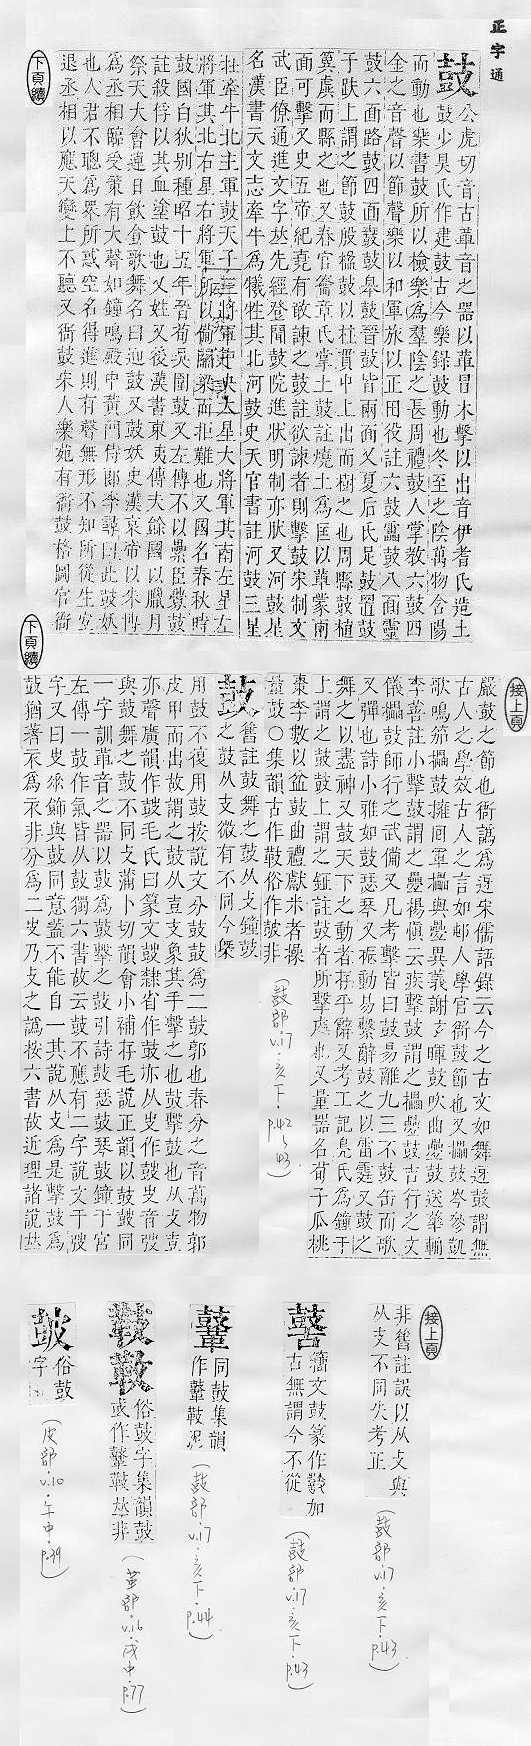 正字通
鼓 公虎切音古革音之器以革冒木擊以出音伊耆氏造土
鼓少昊氏作建鼓古今樂錄鼓動也冬至之陰萬物含陽
而動也樂書鼓所以檢樂爲羣陰之長周禮鼓人掌敎六鼓四
金之音聲以節聲樂以和軍旅以正田役註六鼓靁鼓八面靈
鼓六面路鼓四面鼖鼓鼛鼓晉鼓皆兩面又夏后氏足鼓置鼓
于趺上謂之節鼓殷楹鼓以柱貫中上出而樹之也周縣鼓植
簨虡而縣之也又春官籥章氏掌土鼓註燒土爲匡以革蒙兩
面可擊又史五帝紀堯有敢諫之鼓註欲諫者則擊鼓宋制文
武臣僚通進文字必先經登聞鼓院進狀明制亦肰又河鼓星
名漢書天文志牽牛爲犧牲其北河鼓史天官書註河鼓三星
在牽牛北主軍鼓天子三將軍中央大星大將軍其南左星左
將軍其北右星右將軍所以備關梁而拒難也又國名春秋時
鼓國白狄别種昭十五年晉荀吳圍鼓又左傳不以纍臣釁鼓
註殺俘以其血塗鼓也又姓又後漢書東夷傳夫餘國以臘月
祭天大會連日飮食歌舞名曰迎鼓又鼓妖史漢哀帝以朱博
爲丞相臨受策有大聲如鐘鳴殿中黃門侍郞李尋曰此鼓妖
也人君不聰爲衆所惑空名得進則有聲無形不知所從生宐
退丞相以應天變上不聽又衙鼓宋人樂苑有衙鼓格圖官衙
下頁續
接上頁
嚴鼓之節也衙譌爲迓宋儒語錄云今之古文如舞迓鼓謂無
古人之學效古人之言如邨人學官衙鼓節也又攂鼓岑參凱
歌鳴笳攂鼓擁囘軍攂與疊異義謝玄暉鼓吹曲疊鼓送華輈
李善註小擊鼓謂之疊楊愼云疾擊鼓謂之攂疊鼓吉行之文
儀攂鼓師行之武備又凡考擊皆曰鼓易離九三不鼓缶而歌
又彈也詩小雅如鼓瑟琴又振動易繫辭鼓之以雷霆又鼓之
舞之以盡神又鼓天下之動者存乎辭又考工記鳧氏爲鐘于
上謂之鼓鼓上謂之鉦註鼓者所擊處也又量器名荀子瓜桃
棗李數以盆鼓曲禮獻米者操
量鼓○集韻古作㪣俗作皷非
(鼓部·v.17·亥下·p.42~43)
鼔 舊註鼓舞之鼓从攴鐘鼓
之鼓从支微有不同今槩
用鼓不復用鼔按說文分鼓鼔爲二鼓郭也春分之音萬物郭
皮甲而出故謂之鼓从壴支象其手擊之也鼔擊鼓也从攴壴
亦聲廣韻作皷毛氏曰篆文鼓隸省作鼓亦从𠬢作鼓𠬢音弢
與鼓舞之鼓不同攴蒲卜切韻會小補存毛說正韻以鼓鼔同
一字訓革音之器以鼓爲鼓擊之鼓引詩鼓瑟鼓琴鼓鐘于宮
左傳一鼓作氣皆从鼓獨六書故云鼓不應有二字說文于弢
字又曰𠬢垂飾與鼓同意蓋不能自一其說从攴爲是擊鼓爲
鼓猶著衣爲衣非分爲二𠬢乃攴之譌按六書故近理諸說竝
下頁續
接上頁
非舊註誤以从攴與
从支不同失考正
(鼓部·v.17·亥下·p.43)
鼛 籀文鼓篆作鼓加
古無謂今不從
(鼓部·v.17·亥下·p.43)
同鼓集韻
(鼓部·v.17·亥下·p.44)
俗鼓字集韻鼓
(革部·v.16·戌中·p.77)
皷 俗鼓
字
(皮部·v.10·午中·p.39)